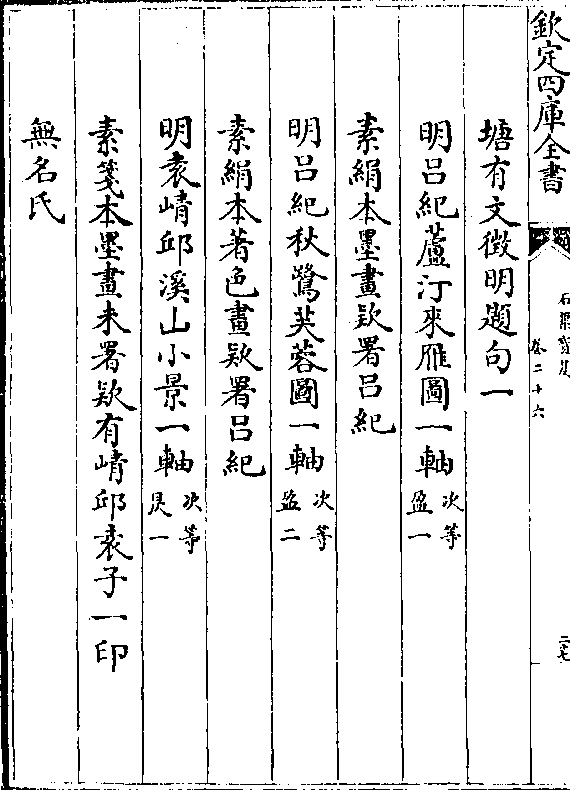 欽定四庫全書
石渠寳笈
卷二十六
二七
塘有文徴明題句一
明吕紀蘆汀來雁圖一軸次等盈一
素絹本墨畫欵署吕紀
明吕紀秋鷺芙蓉圖一軸次等盈二
素絹本著色畫欵署吕紀
明袁崝邱溪山小景一軸次等昃一
素箋本墨畫未署欵有崝邱袁子一印
無名氏